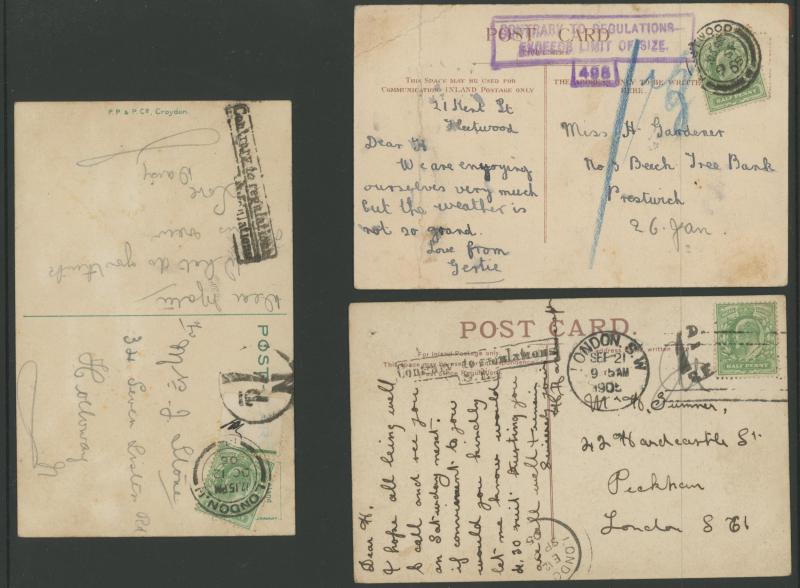 P.P. & P. Co, Croydon.
Contrary to regulations
Dear
Love
Daisy
POST
Mrs J. Stone
34 Seven Sisters Rd
Holloway
N
LONDON N.
12.15 PM
POST CARD
CONTRARY TO REGULATIONS
EXCEEDS LIMIT OF SIZE.
498
THIS SPACE MAY BE USED FOR
COMMUNICATION INLAND POSTAGE ONLY
THE ADDRESS ONLY TO BE WRITTEN
HERE.
HALF PENNY
21 Kent St
Fleetwood
Dear H
We are enjoying
ourselves very much
but the weather is
not so grand.
Love from
Gertie
Miss H Gardener
No 3 Beech Tree Bank
Prestwich
26 Jan.
POST CARD.
For Inland Postage only
This space may be used
Contrary to regulations
LONDON, S.W
SEP 21
9.15 AM
1905
HALF PENNY
Dear H.
I hope all being well
to call and see you
on Saturday next.
if convenient to you
would you kindly
let me know would
4.30 suit trusting you
are well
Sincerely yours
M H Sumner,
42 Hardcastle St.
Peckham
London S E